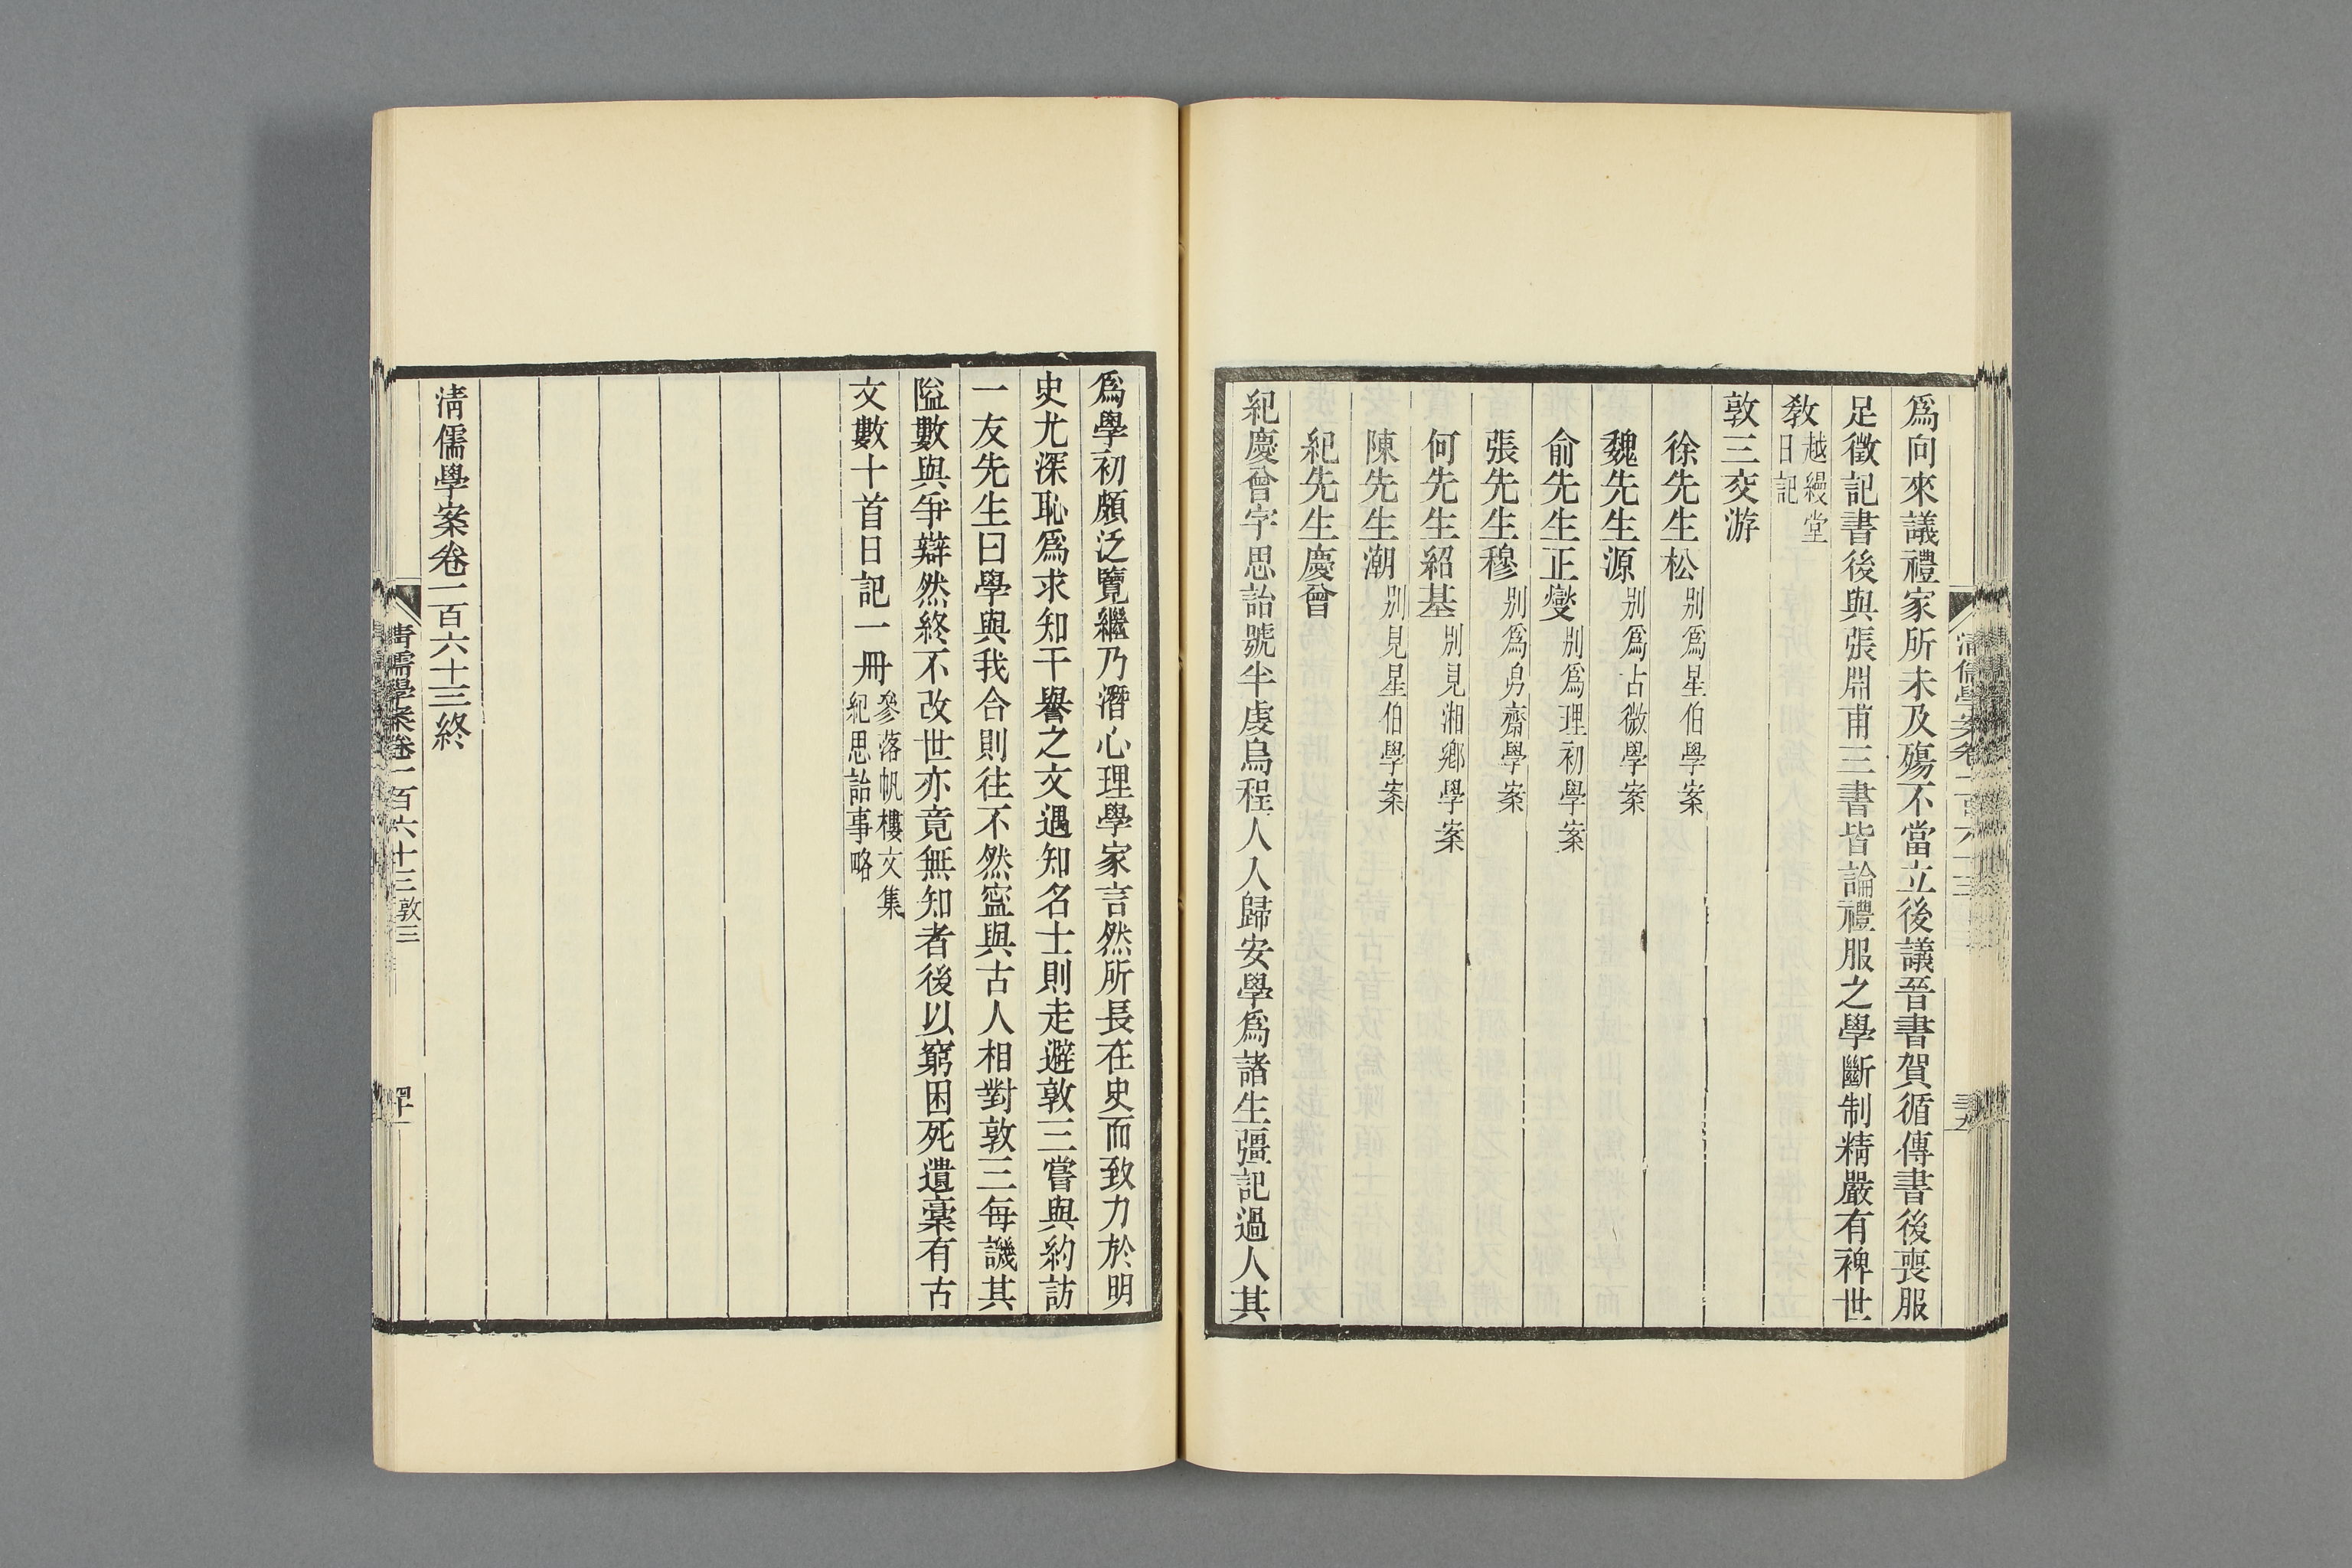 爲向來議禮家所未及殤不當立後議晉書賀循傳書後喪服
足徵記書後與張淵甫三書皆論禮服之學斷制精嚴有裨世
敎越縵堂日記
敦三交游
徐先生松別爲星伯學案
魏先生源別爲古微學案
俞先生正燮別爲理初學案
張先生穆別爲㐆齋學案
何先生紹基別見湘鄉學案
陳先生潮別見星伯學案
紀先生慶曾
紀慶曾字思詒號半虔烏程人入歸安學爲諸生彊記過人其
爲學初頗泛覽繼乃潛心理學家言然所長在史而致力於明
史尤深恥爲求知干譽之文遇知名士則走避敦三嘗與約訪
一友先生曰學與我合則往不然寍與古人相對敦三每譏其
隘數與爭辯然終不改世亦竟無知者後以窮困死遺稾有古
文數十首日記一冊參落帆樓文集紀思詒事略
清儒學案卷一百六十三終
清儒學案卷一百六十三 敦三